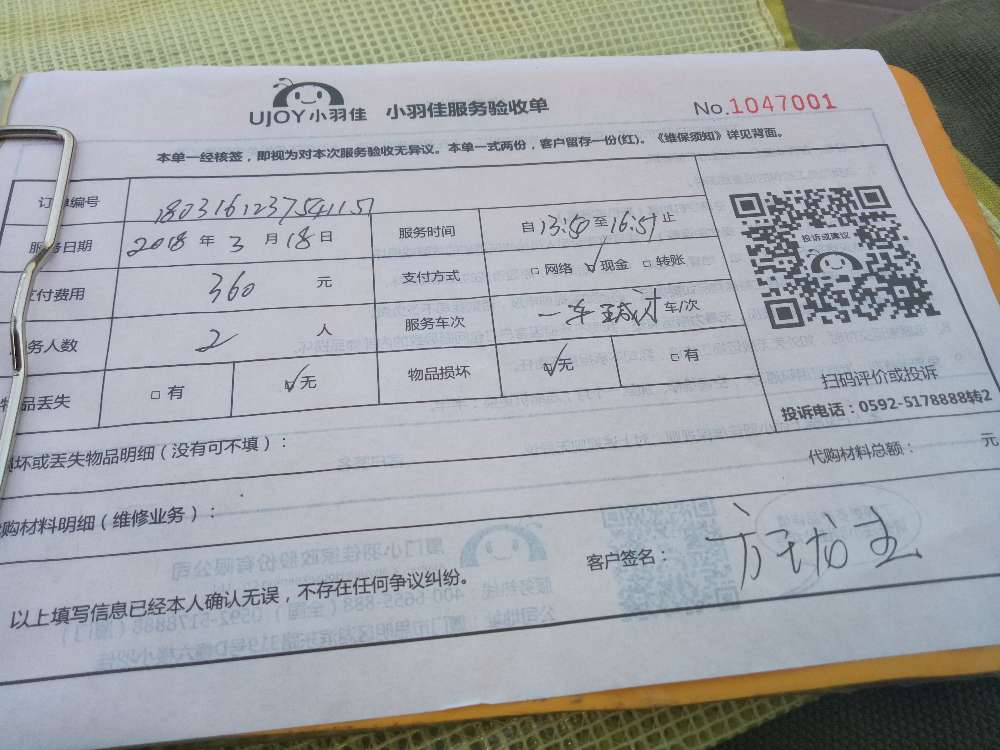 UJOY小羽佳 小羽佳服务验收单 No.1047001
本单一经核签，即视为对本次服务验收无异议。本单一式两份，客户留存一份(红)。《维保须知》详见背面。
订单编号
服务日期 2018 年 3 月 18 日 服务时间 自 13:50 至 16:51 止
付费用 360 元 支付方式 □ 网络 ✓ 现金 □ 转账
务人数 2 人 服务车次 一车 车/次
物品丢失 □ 有 ✓ 无 物品损坏 ✓ 无 □ 有
投诉或建议
扫码评价或投诉
投诉电话：0592-5178888转2
坏或丢失物品明细（没有可不填）：
代购材料总额： 元
购材料明细（维修业务）：
客户签名：
以上填写信息已经本人确认无误，不存在任何争议纠纷。